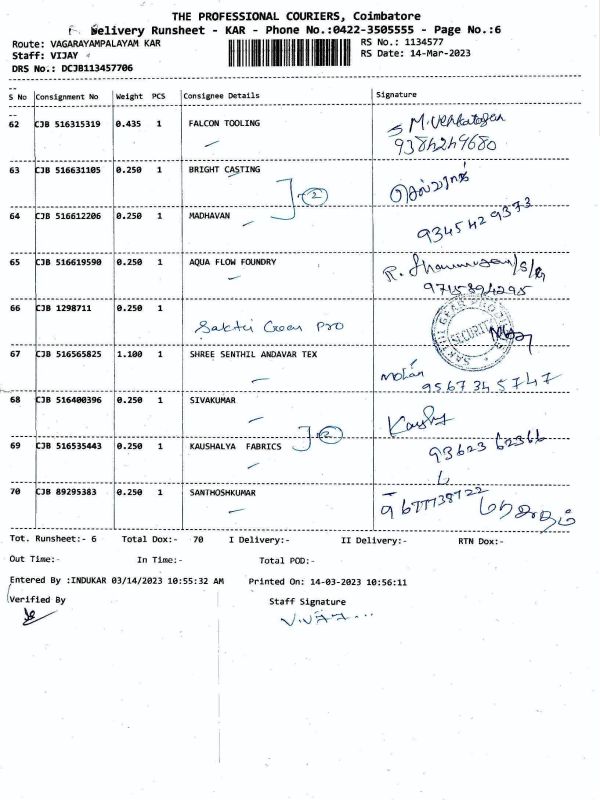 THE PROFESSIONAL COURIERS, Coimbatore
Delivery Runsheet - KAR - Phone No.:0422-3505555 - Page No.:6
Route: VAGARAYAMPALAYAM KAR
RS No.: 1134577
Staff: VIJAY
RS Date: 14-Mar-2023
DRS No.: DCJB113457706
S No Consignment No Weight PCS Consignee Details Signature
62 CJB 516315319 0.435 1 FALCON TOOLING
M. Venkatesan
9384249680
63 CJB 516631105 0.250 1 BRIGHT CASTING
2
64 CJB 516612206 0.250 1 MADHAVAN
9345429373
65 CJB 516619590 0.250 1 AQUA FLOW FOUNDRY
9715894295
66 CJB 1298711 0.250 1
Sakthi Gear Pro
SECURITY
67 CJB 516565825 1.100 1 SHREE SENTHIL ANDAVAR TEX
Mohan
9567345747
68 CJB 516400396 0.250 1 SIVAKUMAR
2
69 CJB 516535443 0.250 1 KAUSHALYA FABRICS
93623 62366
70 CJB 89295383 0.250 1 SANTHOSHKUMAR
9677738722
Tot. Runsheet:- 6 Total Dox:- 70 I Delivery:- II Delivery:- RTN Dox:-
Out Time:- In Time:- Total POD:-
Entered By :INDUKAR 03/14/2023 10:55:32 AM Printed On: 14-03-2023 10:56:11
Verified By Staff Signature